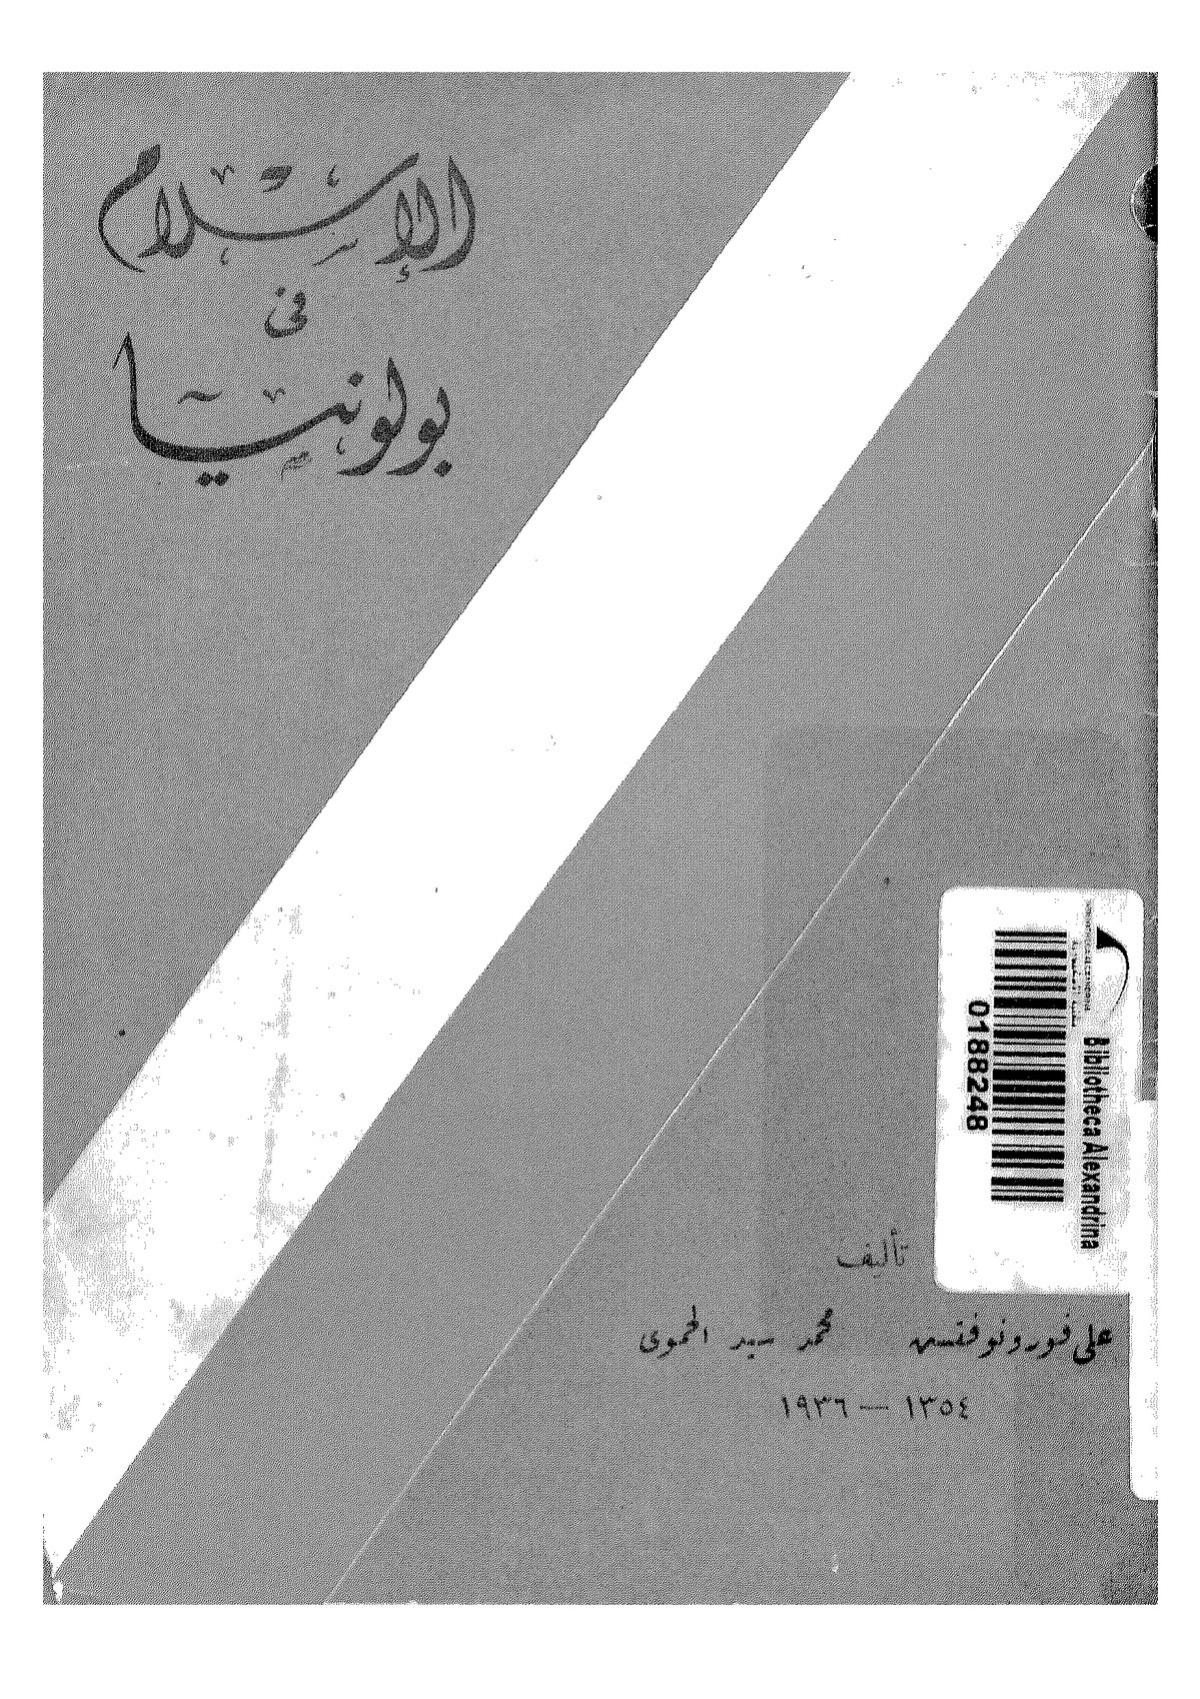 الإسلام
في
بولونيا
Bibliotheca Alexandrina
0188248
تأليف
على فورونوفتش محمد سيد الحموى
١٣٥٤ — ١٩٣٦